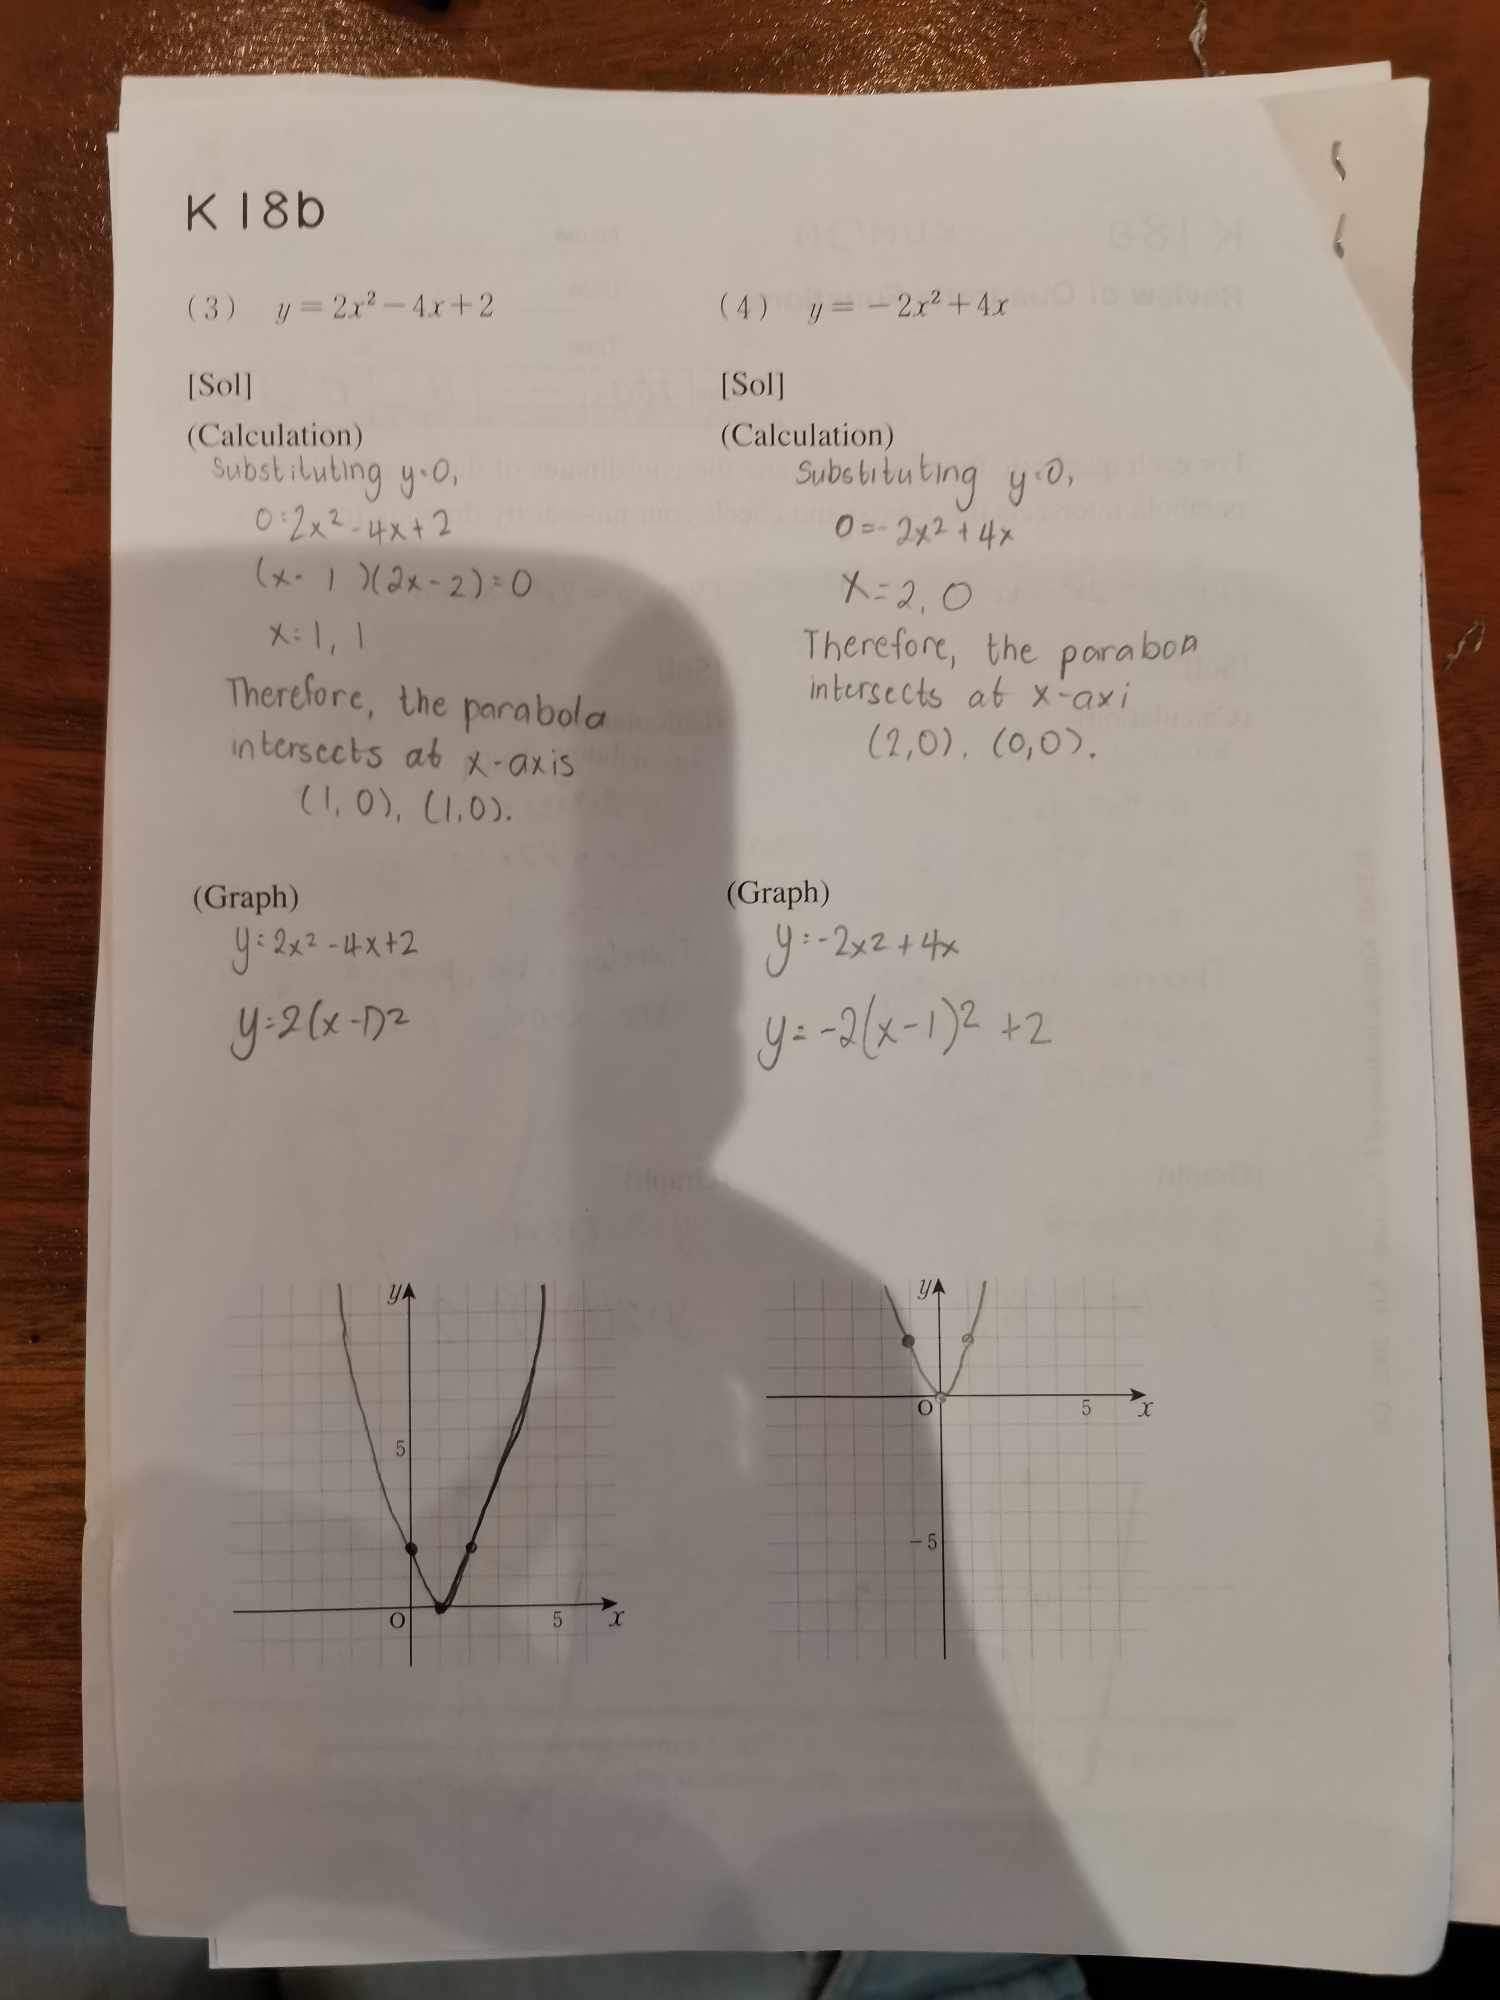 K 18b
(3) y = 2x² − 4x + 2
[Sol]
(Calculation)
Substituting y=0,
0=2x² - 4x + 2
(x - 1 )(2x - 2) = 0
x=1, 1
Therefore, the parabola
intersects at x-axis
(1, 0), (1,0).
(Graph)
y=2x² -4x+2
y=2(x-1)²
y
5
O
5
x
(4) y = −2x² + 4x
[Sol]
(Calculation)
Substituting y=0,
0=- 2x² + 4x
x=2, 0
Therefore, the paraboa
intersects at x-axi
(2,0), (0,0).
(Graph)
y=-2x² + 4x
y= -2(x-1)² +2
y
O
5
x
−5